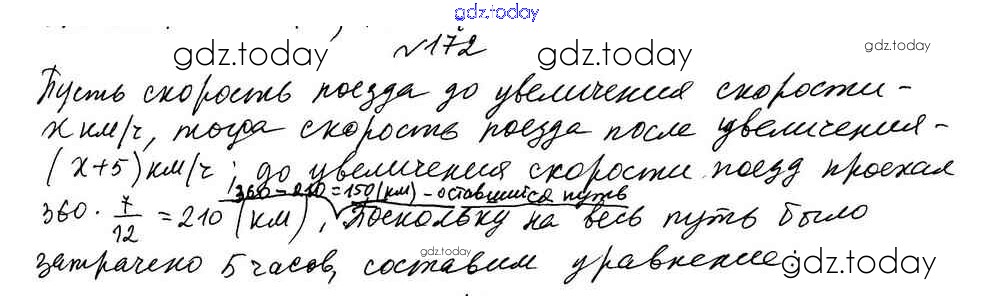 gdz.today
№172
gdz.today
gdz.today
gdz.today
Пусть скорость поезда до увеличения скорости -
x км/ч, тогда скорость поезда после увеличения -
(x+5) км/ч; до увеличения скорости поезд проехал
360-210=150(км) - оставшийся путь
360 · 7/12 = 210 (км), Поскольку на весь путь было
затрачено 5 часов, составим уравнение:
gdz.today
gdz.today
gdz.today